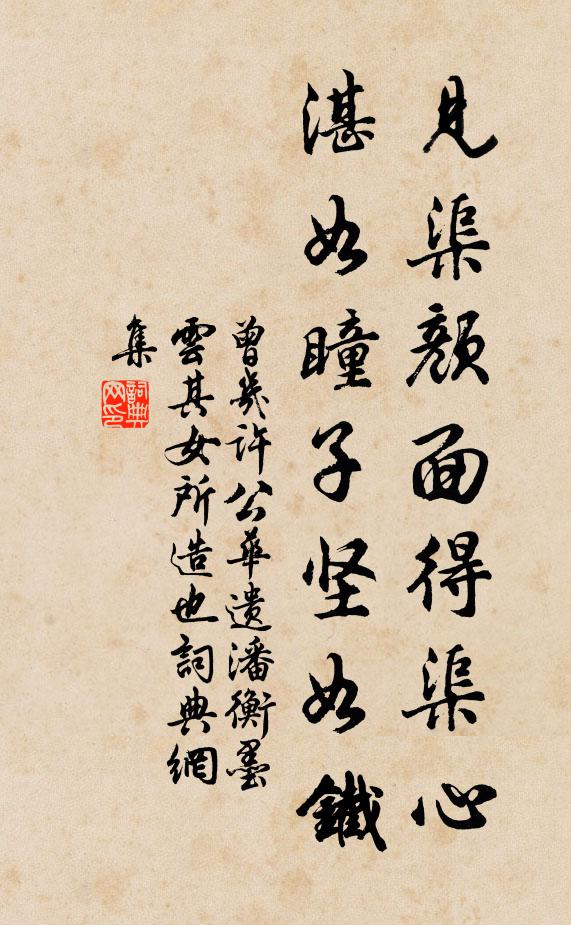 見渠顏面得渠心
湛如瞳子坚如鐵
曾幾許公華遺潘衡墨
雲其女所造也詞典網
集
詞典网印